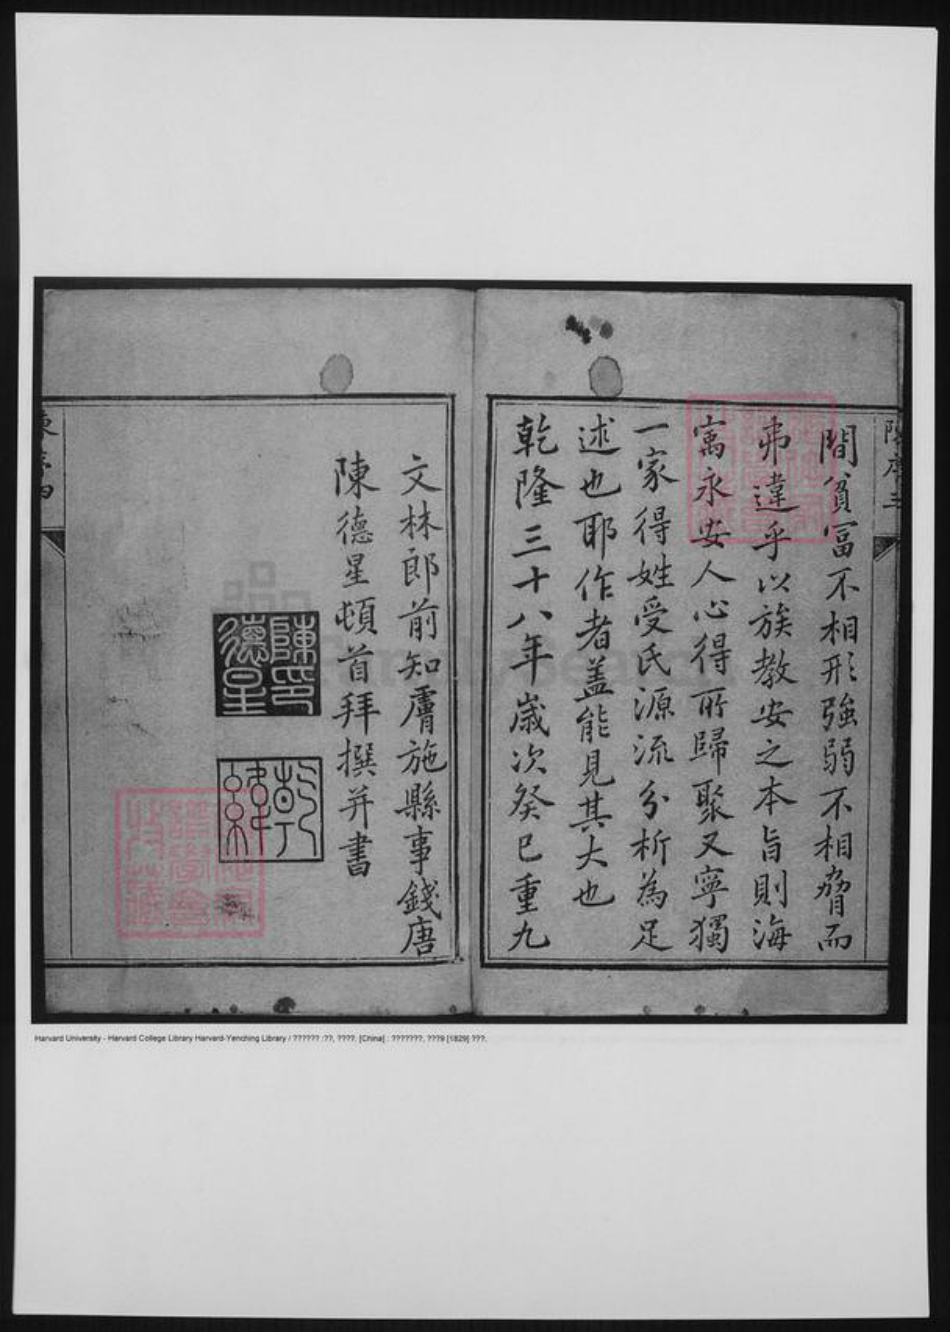 間貧富不相形強弱不相脅而
弗違乎以族教安之本旨則海
㝢永安人心得所歸聚又寧獨
一家得姓受氏源流分析為足
述也耶作者盖能見其大也
乾隆三十八年歲次癸巳重九
文林郎前知膚施縣事錢唐
陳德星頓首拜撰并書
陳印
德星
Harvard University - Harvard College Library Harvard-Yenching Library / ?????? :??, ????. [China] : ???????, ???9 [1829] ???.